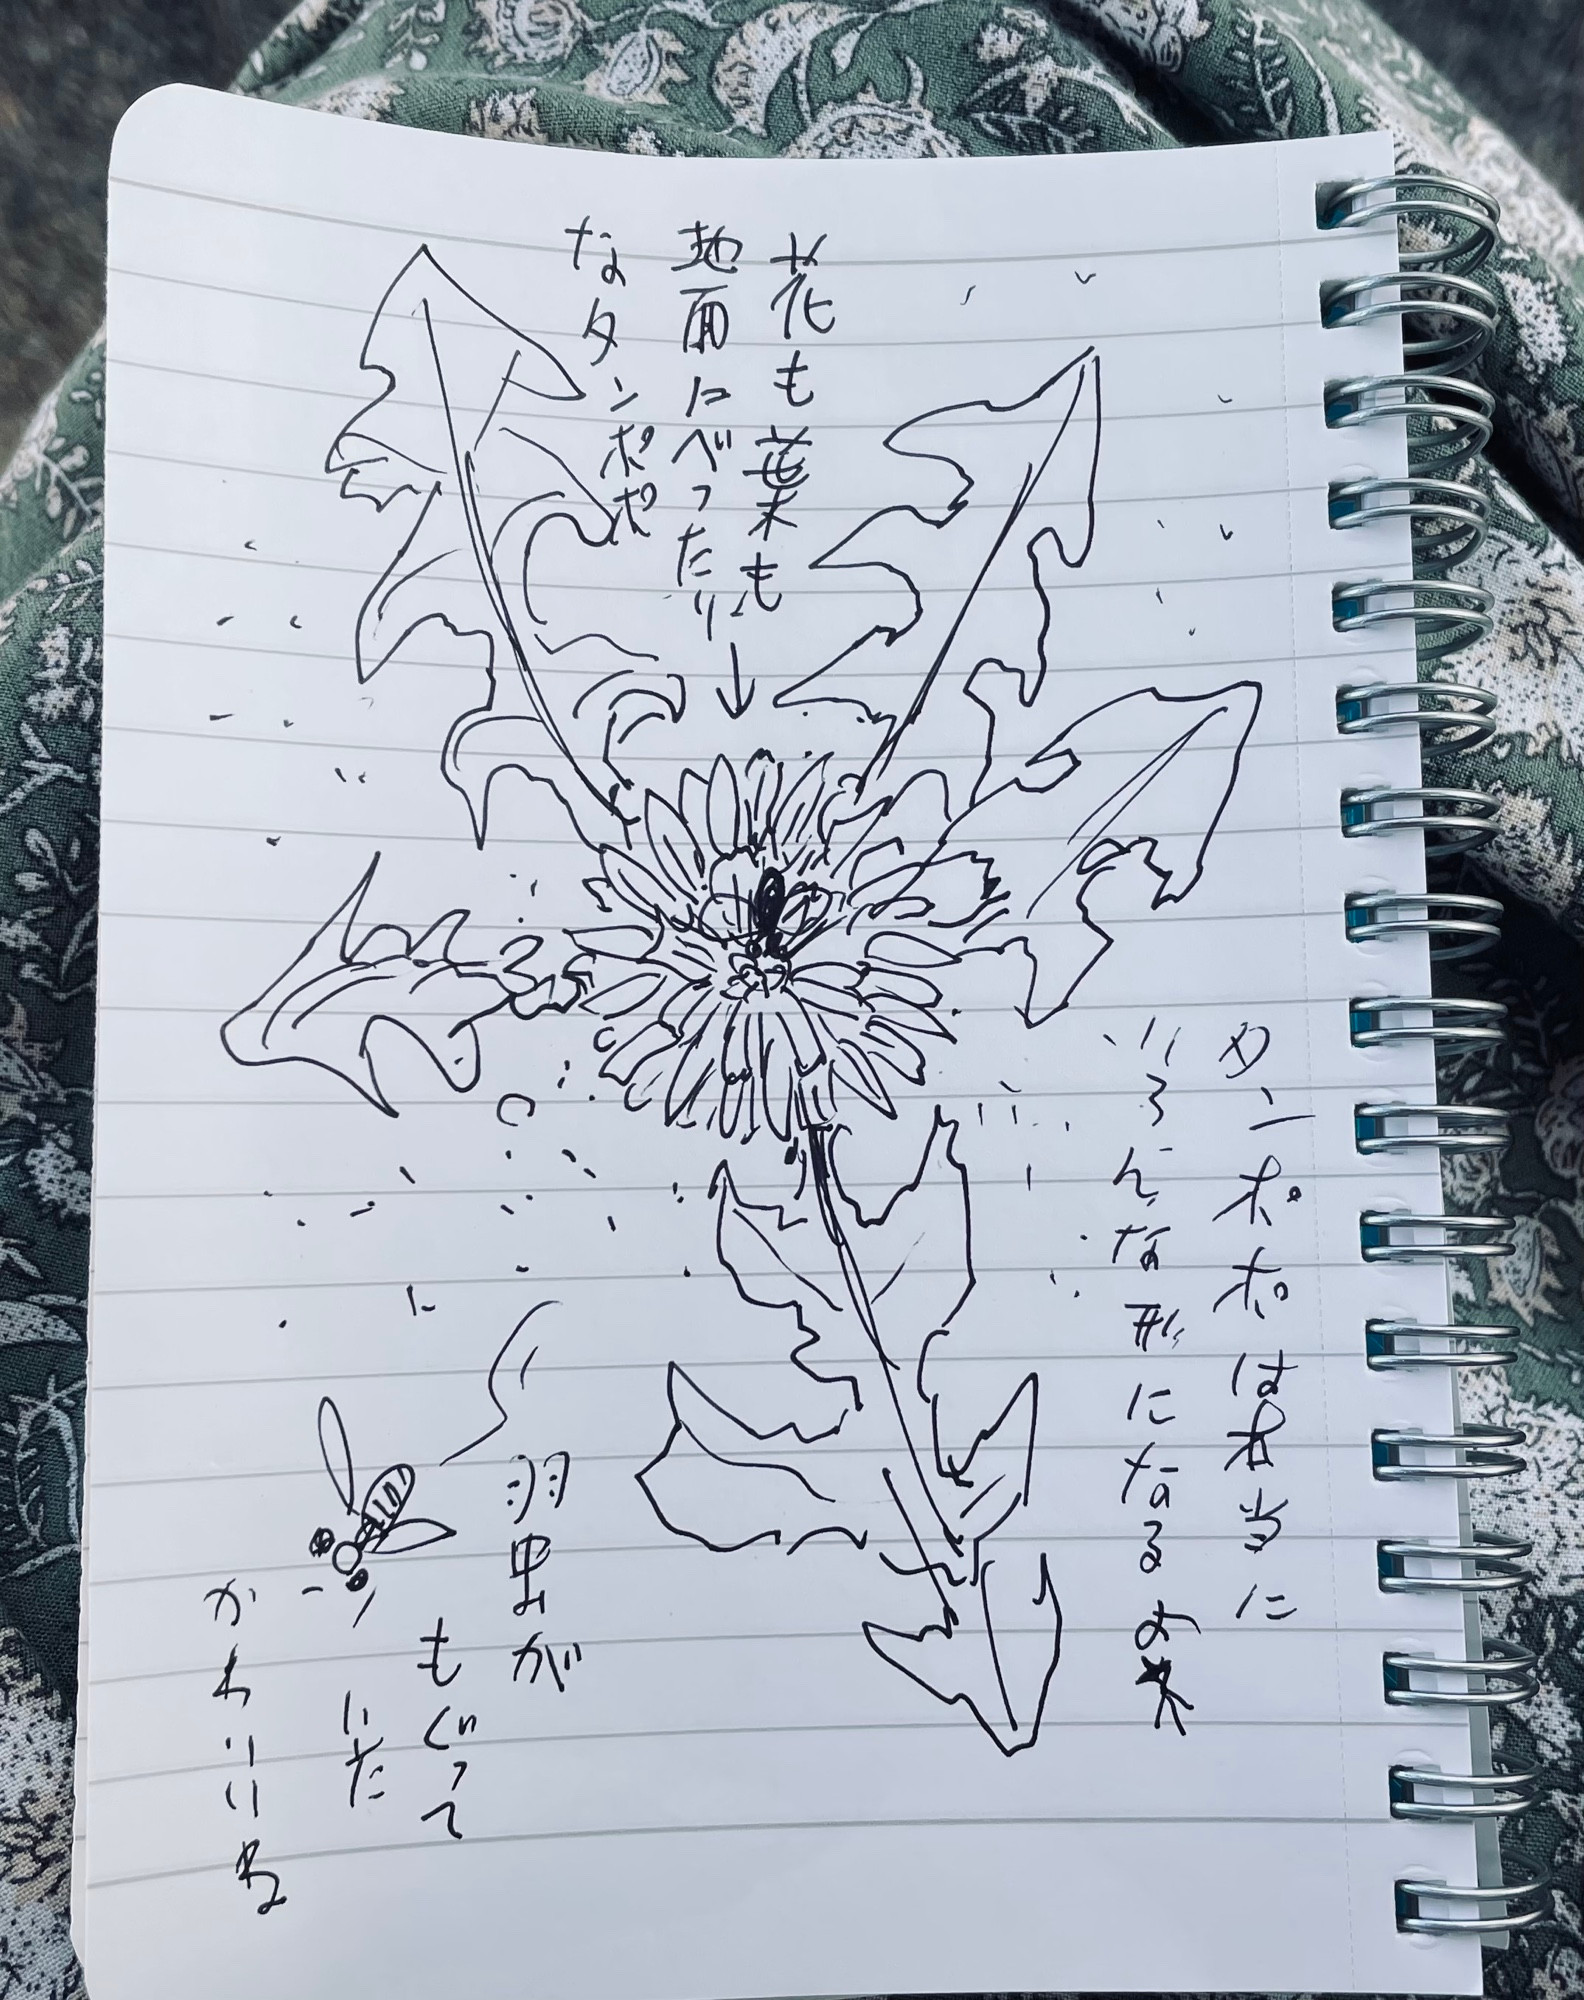 花も葉も
地面にべったり
なタンポポ
タンポポは本当に
いろんな形になるよ
羽虫が
もぐって
いた
かわいいね